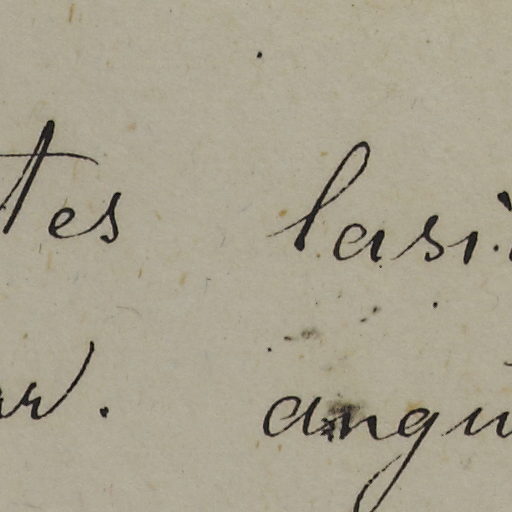 tes lasi
ar. angu